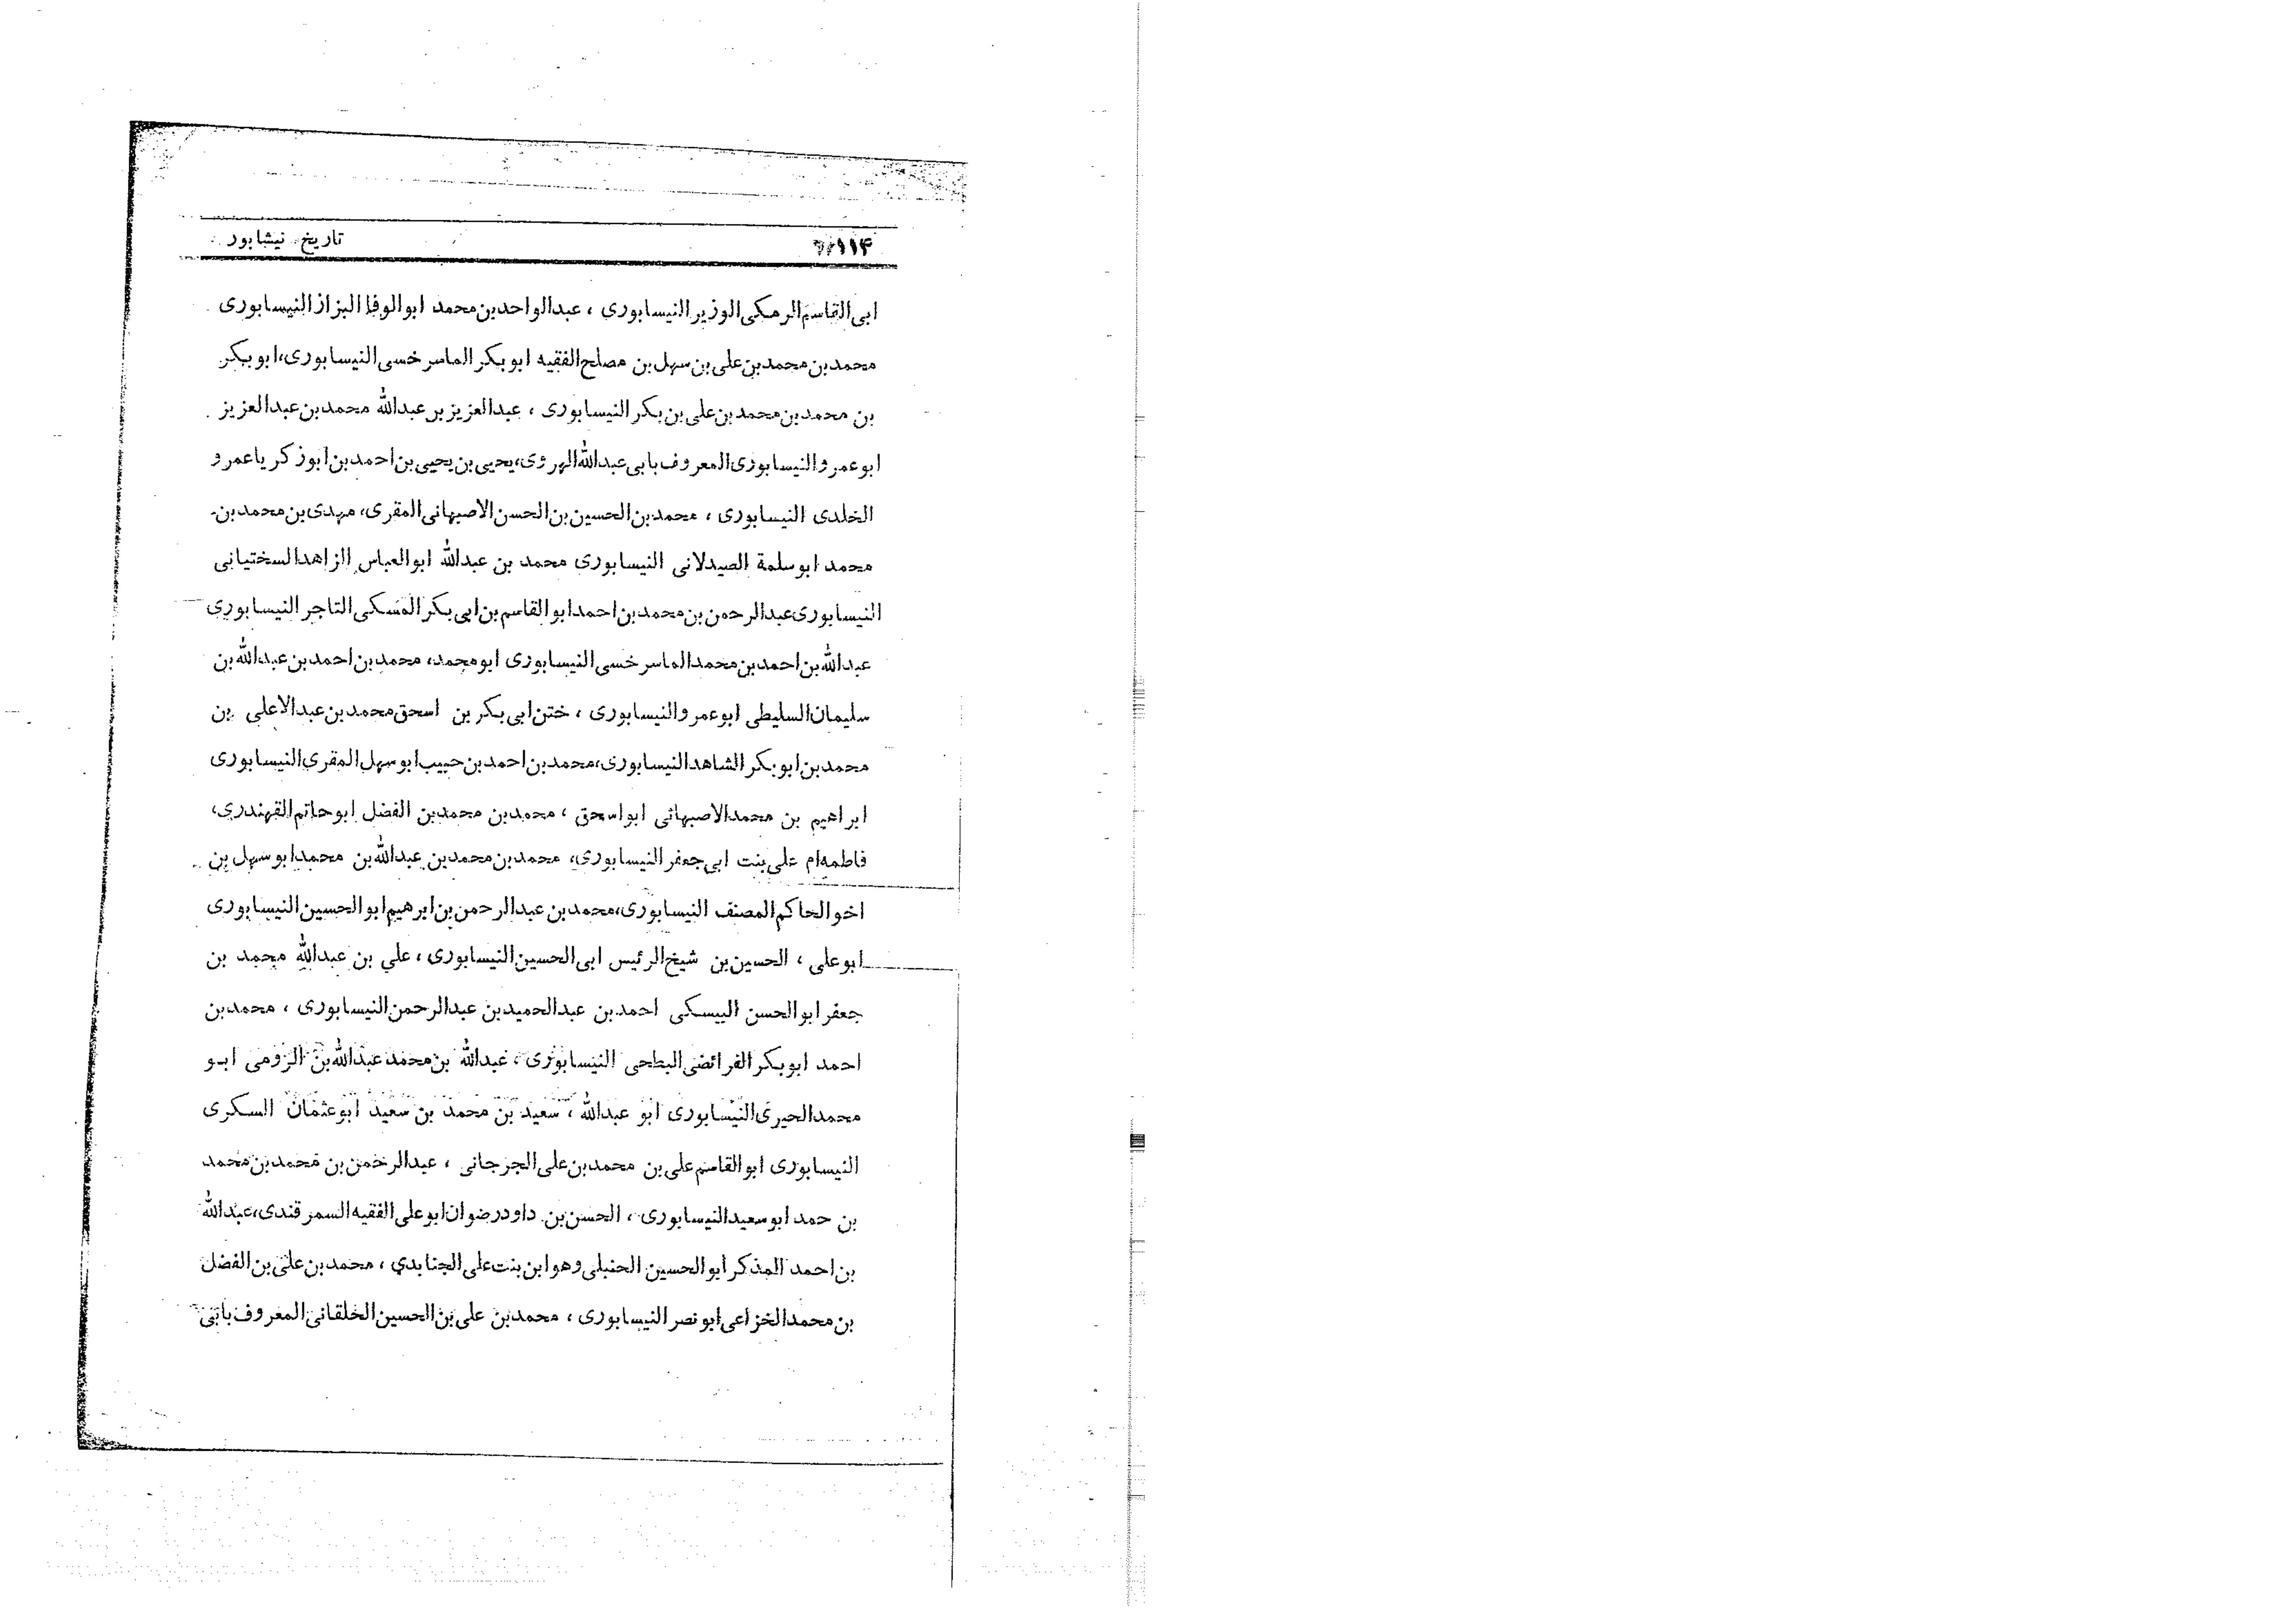 ۱۱۴ تاریخ نیشابور
ابی القاسم الرمکی الوزیر النیسابوری ، عبدالواحدبن محمد ابوالوفا البزاز النیسابوری
محمدبن محمدبن علی بن سهل بن مصلح الفقیه ابوبکر الماسرخسی النیسابوری، ابوبکر
بن محمدبن محمدبن علی بن بکر النیسابوری ، عبدالعزیز بر عبدالله محمدبن عبدالعزیز
ابوعمرو النیسابوری المعروف بابی عبدالله الهروی، یحیی بن یحیی بن احمدبن ابوزکریا عمرو
الخلدی النیسابوری ، محمدبن الحسین بن الحسن الاصبهانی المقری، مهدی بن محمدبن-
محمد ابوسلمة الصیدلانی النیسابوری محمد بن عبدالله ابوالعباس الزاهد السختیانی
النیسابوری عبدالرحمن بن محمدبن احمد ابوالقاسم بن ابی بکر المسکی التاجر النیسابوری
عبدالله بن احمدبن محمد الماسرخسی النیسابوری ابومحمد، محمدبن احمدبن عبدالله بن
سلیمان السلیطی ابوعمرو النیسابوری ، ختن ابی بکر بن اسحق محمدبن عبدالاعلی بن
محمدبن ابوبکر الشاهد النیسابوری، محمدبن احمدبن حبیب ابوسهل المقری النیسابوری
ابراهیم بن محمد الاصبهانی ابواسحق ، محمدبن محمدبن الفضل ابوحاتم القهندری،
فاطمه ام علی بنت ابی جعفر النیسابوری، محمدبن محمدبن عبدالله بن محمد ابوسهل بن
اخو الحاکم المصنف النیسابوری، محمدبن عبدالرحمن بن ابرهیم ابوالحسین النیسابوری
ابوعلی ، الحسین بن شیخ الرئیس ابی الحسین النیسابوری ، علی بن عبدالله محمد بن
جعفر ابوالحسن البیسکی احمدبن عبدالحمیدبن عبدالرحمن النیسابوری ، محمدبن
احمد ابوبکر الفرائضی البطحی النیسابوری ، عبدالله بن محمد عبدالله بن الرومی ابو
محمد الحیری النیسابوری ابو عبدالله ، سعید بن محمد بن سعید ابوعثمان السکری
النیسابوری ابوالقاسم علی بن محمدبن علی الجرجانی ، عبدالرحمن بن محمدبن محمد
بن حمد ابوسعید النیسابوری ، الحسن بن داود رضوان ابوعلی الفقیه السمرقندی، عبدالله
بن احمد المذکر ابوالحسین الحنبلی وهو ابن بنت علی الجنابدی ، محمدبن علی بن الفضل
بن محمد الخزاعی ابونصر النیسابوری ، محمدبن علی بن الحسین الخلقانی المعروف بابی